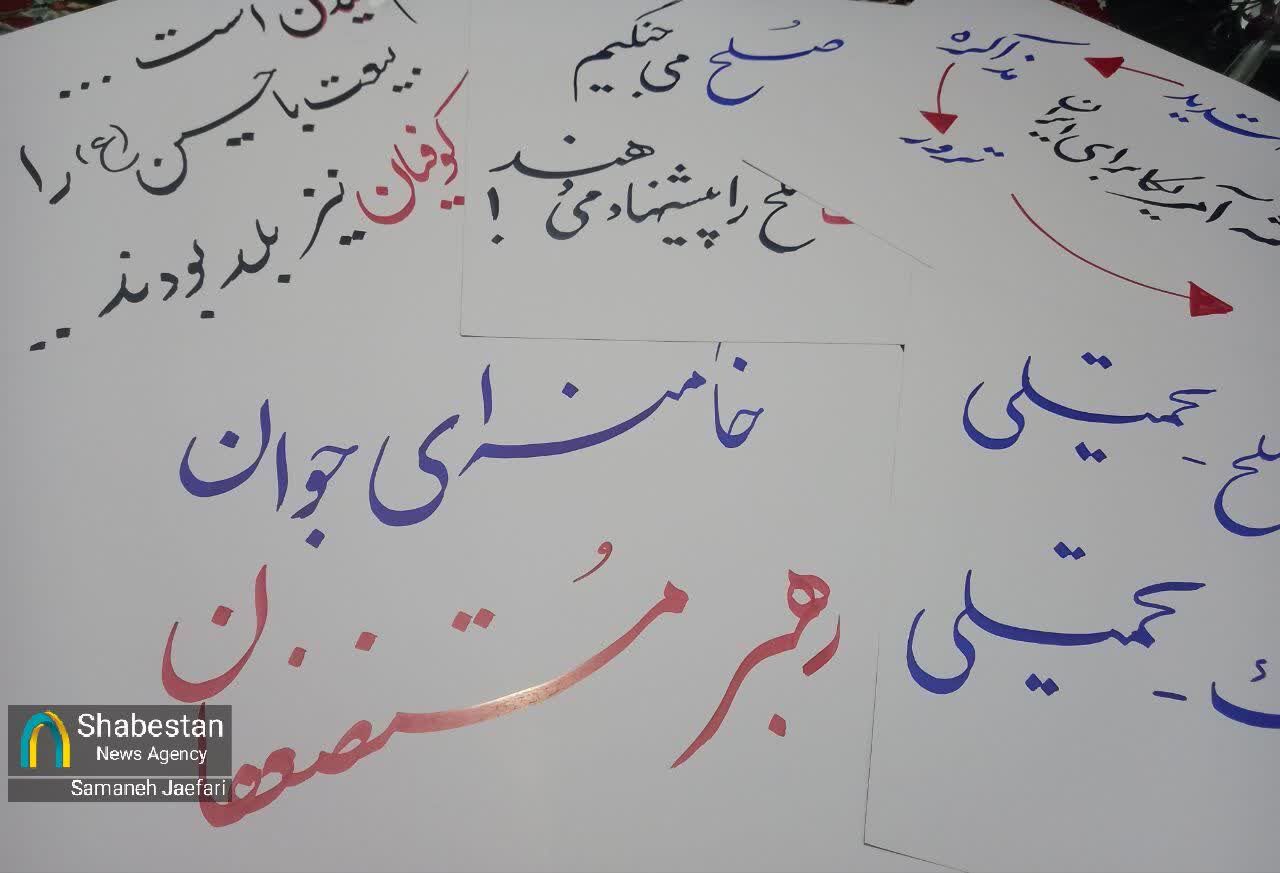 است ...
بیعت با حسین (ع) را
کوفیان نیز بلد بودند ..
صُلح می جنگیم
هند
را پیشنهاد می !
مذاکره
ترور
آمریکا برای ایران
خامنه‌ای جوان
رهبر مُستضعفان
تحمیلی
صلح
تحمیلی
Shabestan
News Agency
Samaneh Jaefari